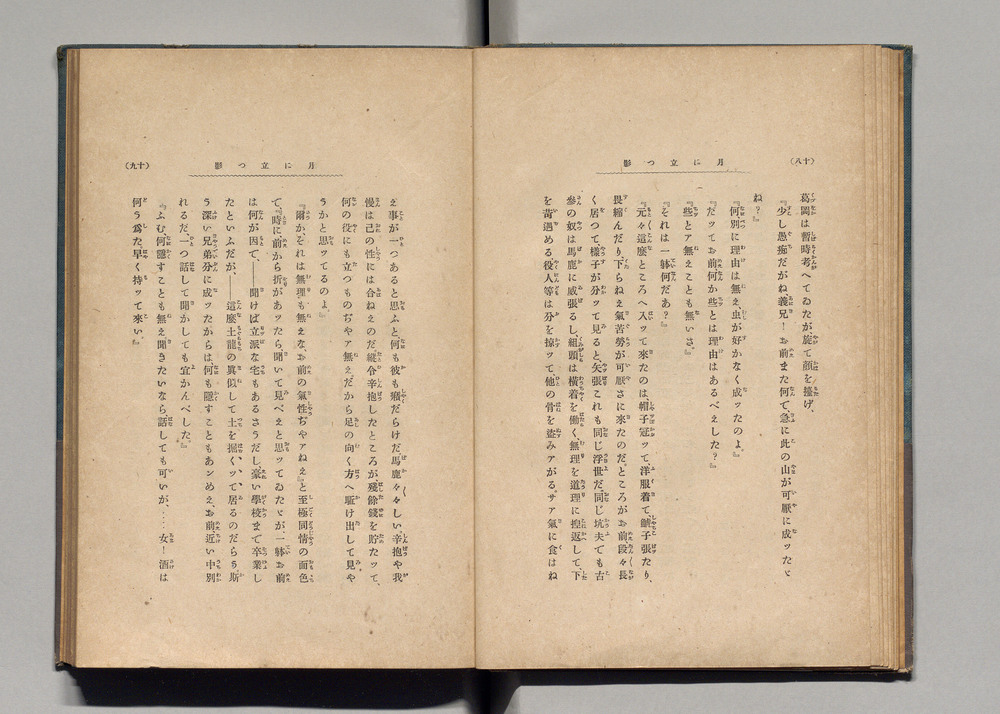 (十八)
月に立つ影
葛岡は暫時考へてゐたが旋て顔を擡げ、
『少し愚痴だがね義兄!お前また何で、急に此の山が可厭に成ッたゞ
ね?』
『何、別に理由は無え虫が好かなく成ッたのよ。』
『だッてお前何か些とは理由はあるべえした?』
『些とア無えことも無いさ。』
『それは一躰何だあ?』
『元々這麽ところへ入ッて來たのは、帽子冠ッて、洋服着て、鯱子張たり、
畏縮んだり下らねえ氣苦勞が可厭さに來たのだ。ところがお前段々長
く居つて樣子が分ッて見ると、矢張これも同じ浮世だ同じ坑夫でも古
參の奴は馬鹿に威張るし、組頭は橫着を働く、無理を道理に捏返して、下
を苛遇める役人等は分を掠ッて他の骨を盜みアがる。サア氣に食はね
え事が一つあると思ふと、何も彼も癪だらけだ、馬鹿々々しい辛抱や我
慢は己の性には合ねえのだ、縱令辛抱したところが、殘餘錢を貯たッて、
何の役にも立つものぢやア無え、だから足の向く方へ駈け出して見や
うかと思ッてるのよ。』
『爾か、それは無理も無えな、お前の氣性ぢやアねえ』と至極同情の面色
で、『時に前から折があッたら、聞いて見べえと思ッてゐたゞが、一躰お前
は何が因で、――聞けば立派な宅もあるさうだし、豪い學校まで卒業し
たといふだが、――這麽土龍の眞似して土を掘くッて居るのだらう斯
う深い兄弟分に成ッたからは、何も隱すこともあンめえ、お前、近い中別
れるだ、一つ話して聞かしても宜かんべした。』
『ふむ何隱すことも無え聞きたいなら、話しても可いが、……女!酒は
何う爲た、早く持ッて來い。』
月に立つ影
(十九)